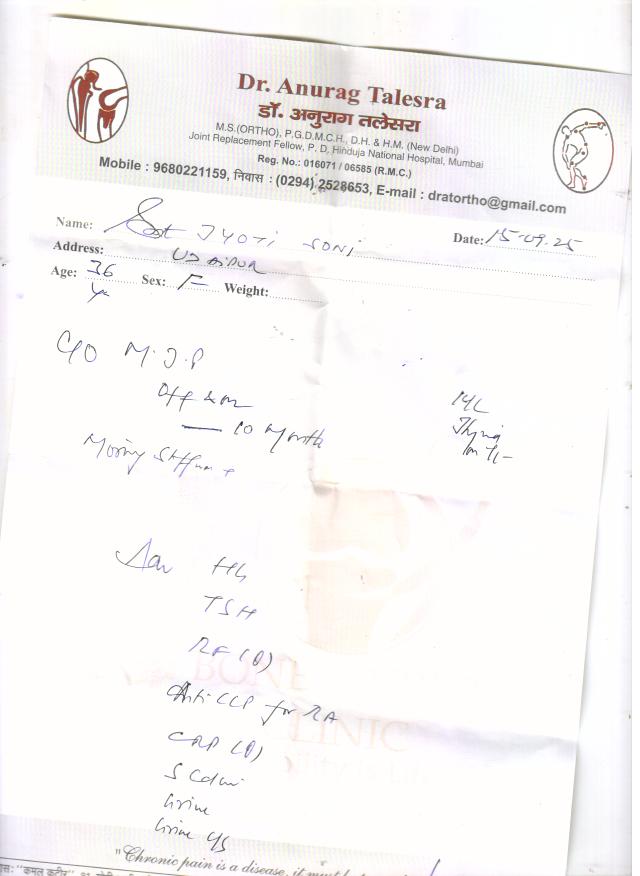 Dr. Anurag Talesra
डॉ. अनुराग तलेसरा
M.S.(ORTHO), P.G.D.M.C.H., D.H. & H.M. (New Delhi)
Joint Replacement Fellow, P. D. Hinduja National Hospital, Mumbai
Reg. No.: 016071 / 06585 (R.M.C.)
Mobile : 9680221159, निवास : (0294) 2528653, E-mail : dratortho@gmail.com
Name: JYOTI SONI Date: 15-09-25
Address: UDAIPUR
Age: 36 Sex: F Weight:
C/O M.J.P
10 month
Morning Stiffness +
Adv Hb
TSH
RF (Q)
Anti CCP for RA
CRP (Q)
Urine
Urine
"Chronic pain is a disease, it must
BONE
CLINIC